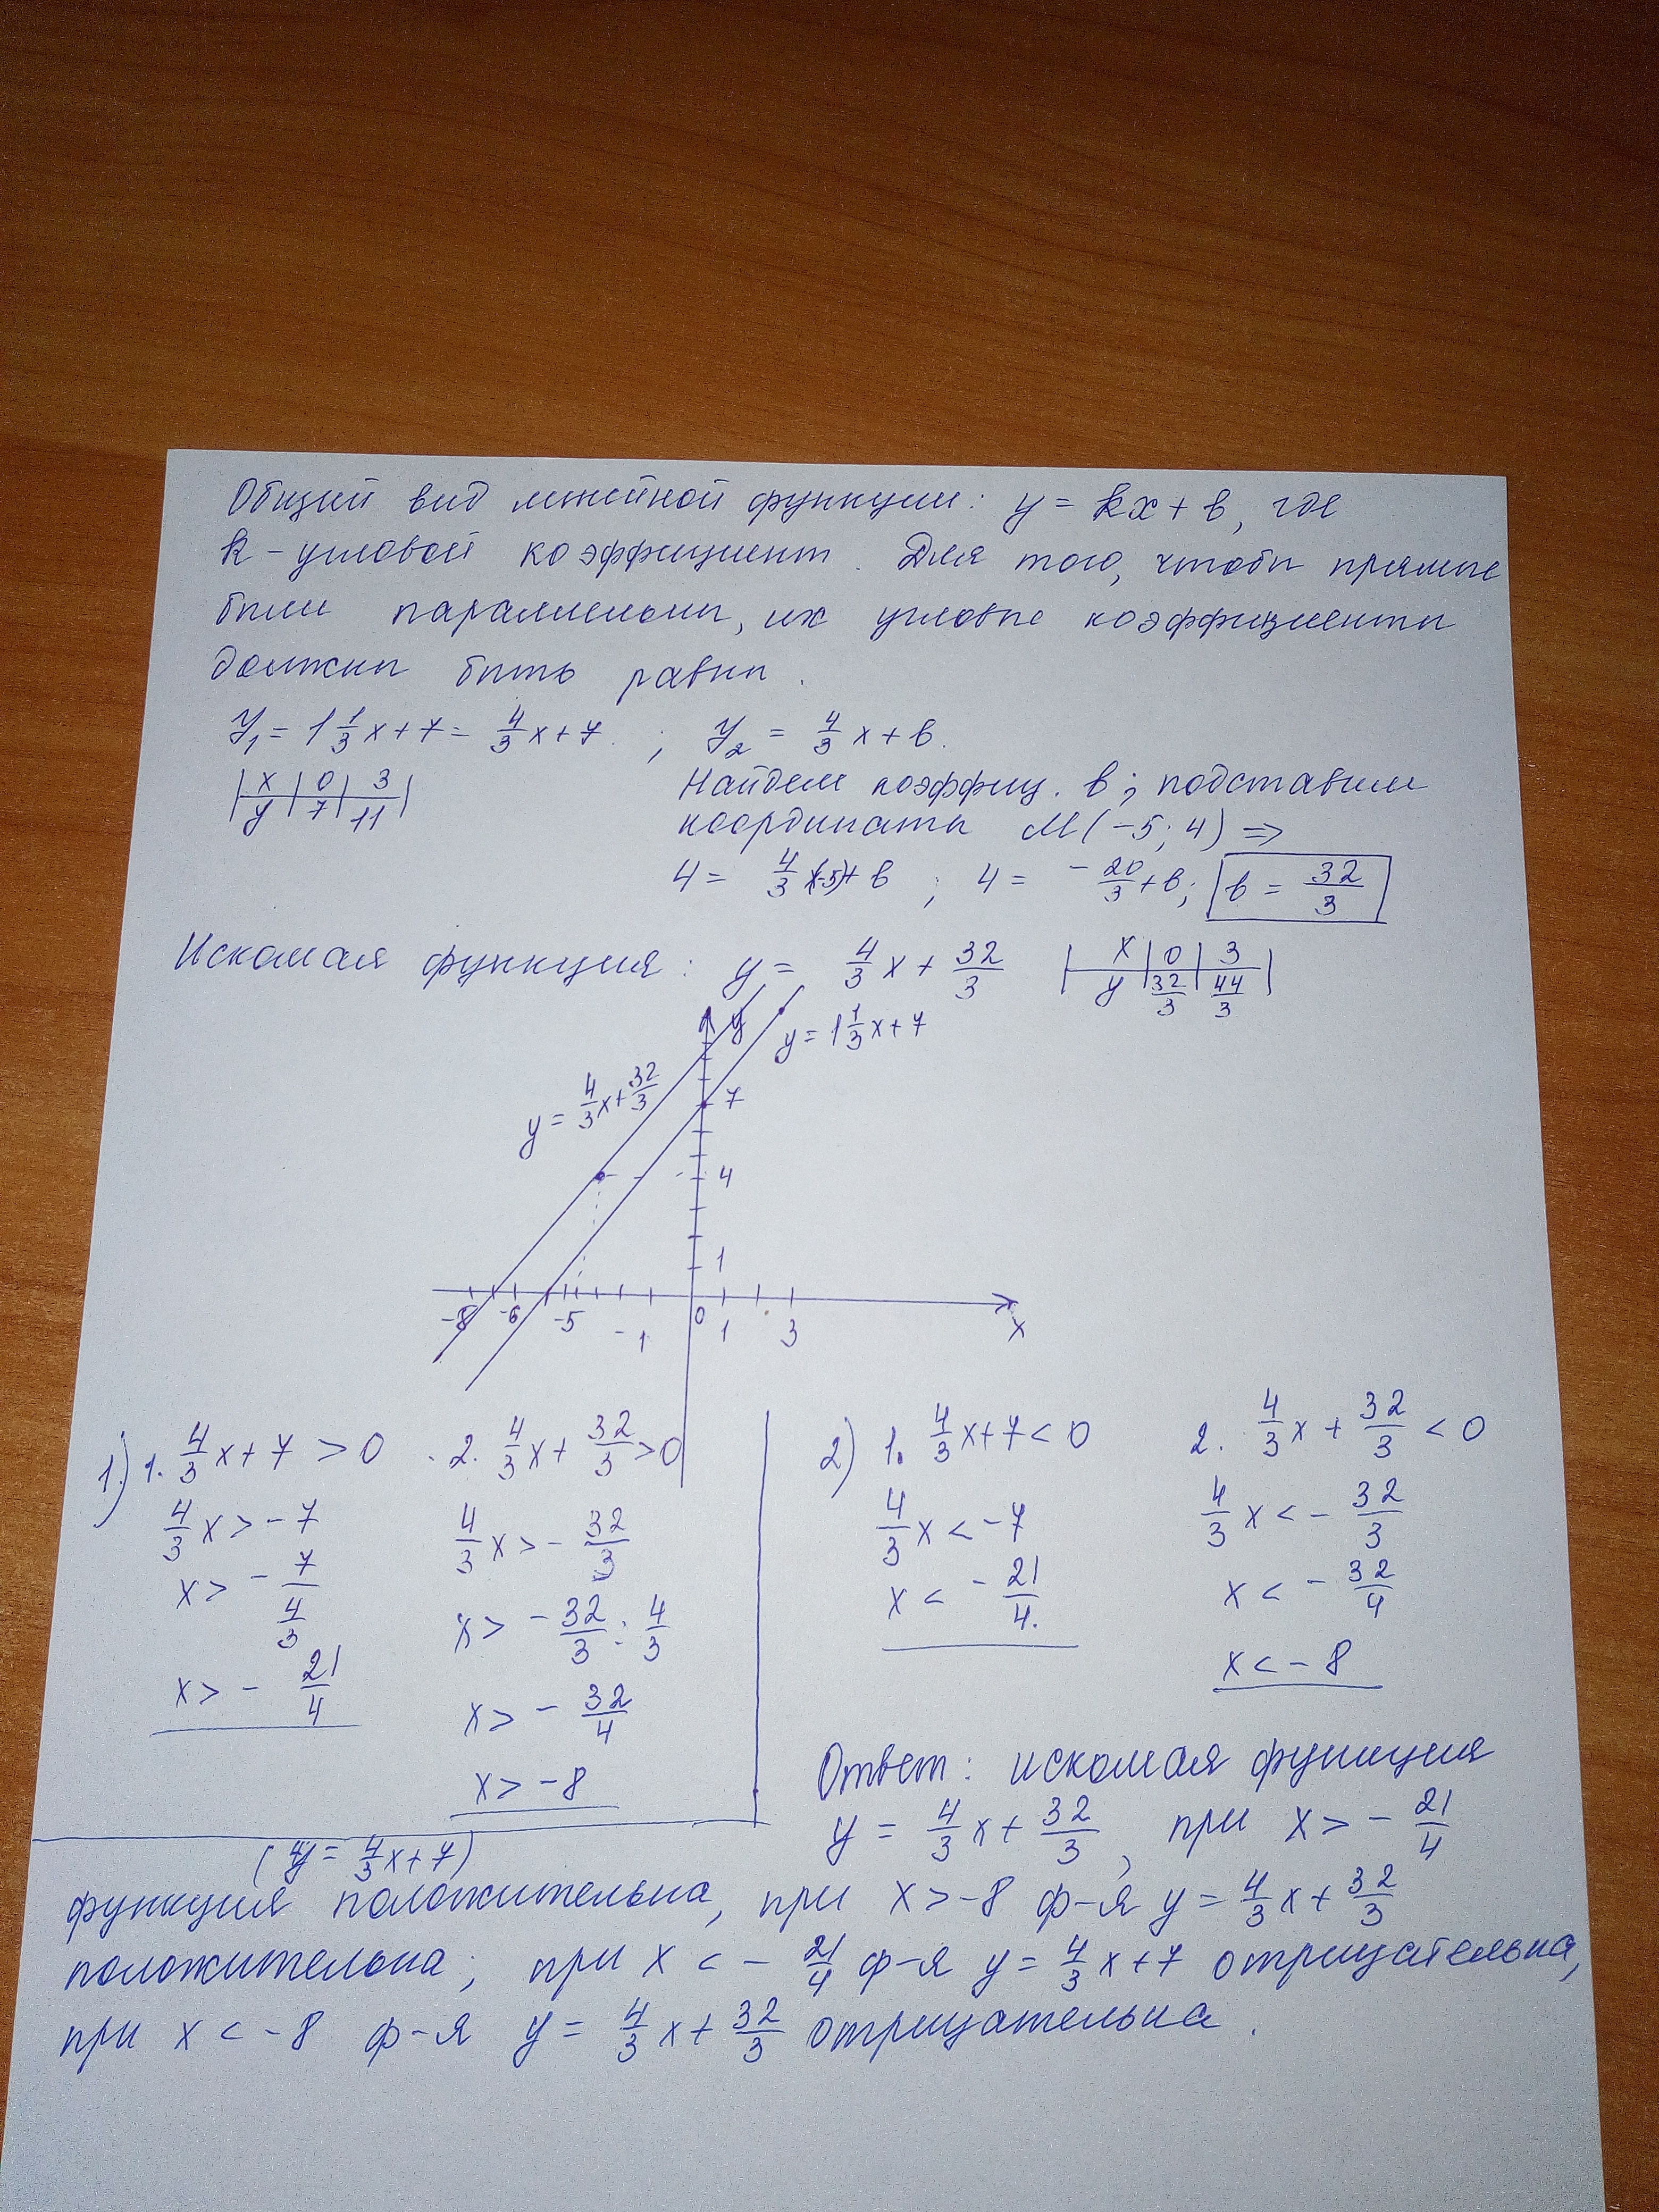 Общий вид линейной функции: y = kx + b, где
k - угловой коэффициент. Для того, чтобы прямые
были параллельны, их угловые коэффициенты
должны быть равны.
y₁ = 1 1/3 x + 7 = 4/3 x + 7. ; y₂ = 4/3 x + b.
| x | 0 | 3 |
| y | 7 | 11 |
Найдем коэффиц. b; подставим
координаты M(-5; 4) ⇒
4 = 4/3 ·(-5) + b ; 4 = - 20/3 + b; b = 32/3
Искомая функция: y = 4/3 x + 32/3
| x | 0 | 3 |
| y | 32/3 | 44/3 |
y
y = 1 1/3 x + 7
y = 4/3 x + 32/3
7
4
1
-8 -6 -5 -1 0 1 3 x
1) 1. 4/3 x + 7 > 0
4/3 x > - 7
x > - 7/(4/3)
x > - 21/4
2. 4/3 x + 32/3 > 0
4/3 x > - 32/3
x > - 32/3 : 4/3
x > - 32/4
x > - 8
2) 1. 4/3 x + 7 < 0
4/3 x < - 7
x < - 21/4.
2. 4/3 x + 32/3 < 0
4/3 x < - 32/3
x < - 32/4
x < - 8
Ответ: искомая функция
y = 4/3 x + 32/3, при x > - 21/4
(y = 4/3 x + 7)
функция положительна, при x > -8 ф-я y = 4/3 x + 32/3
положительна; при x < - 21/4 ф-я y = 4/3 x + 7 отрицательна,
при x < -8 ф-я y = 4/3 x + 32/3 отрицательна.